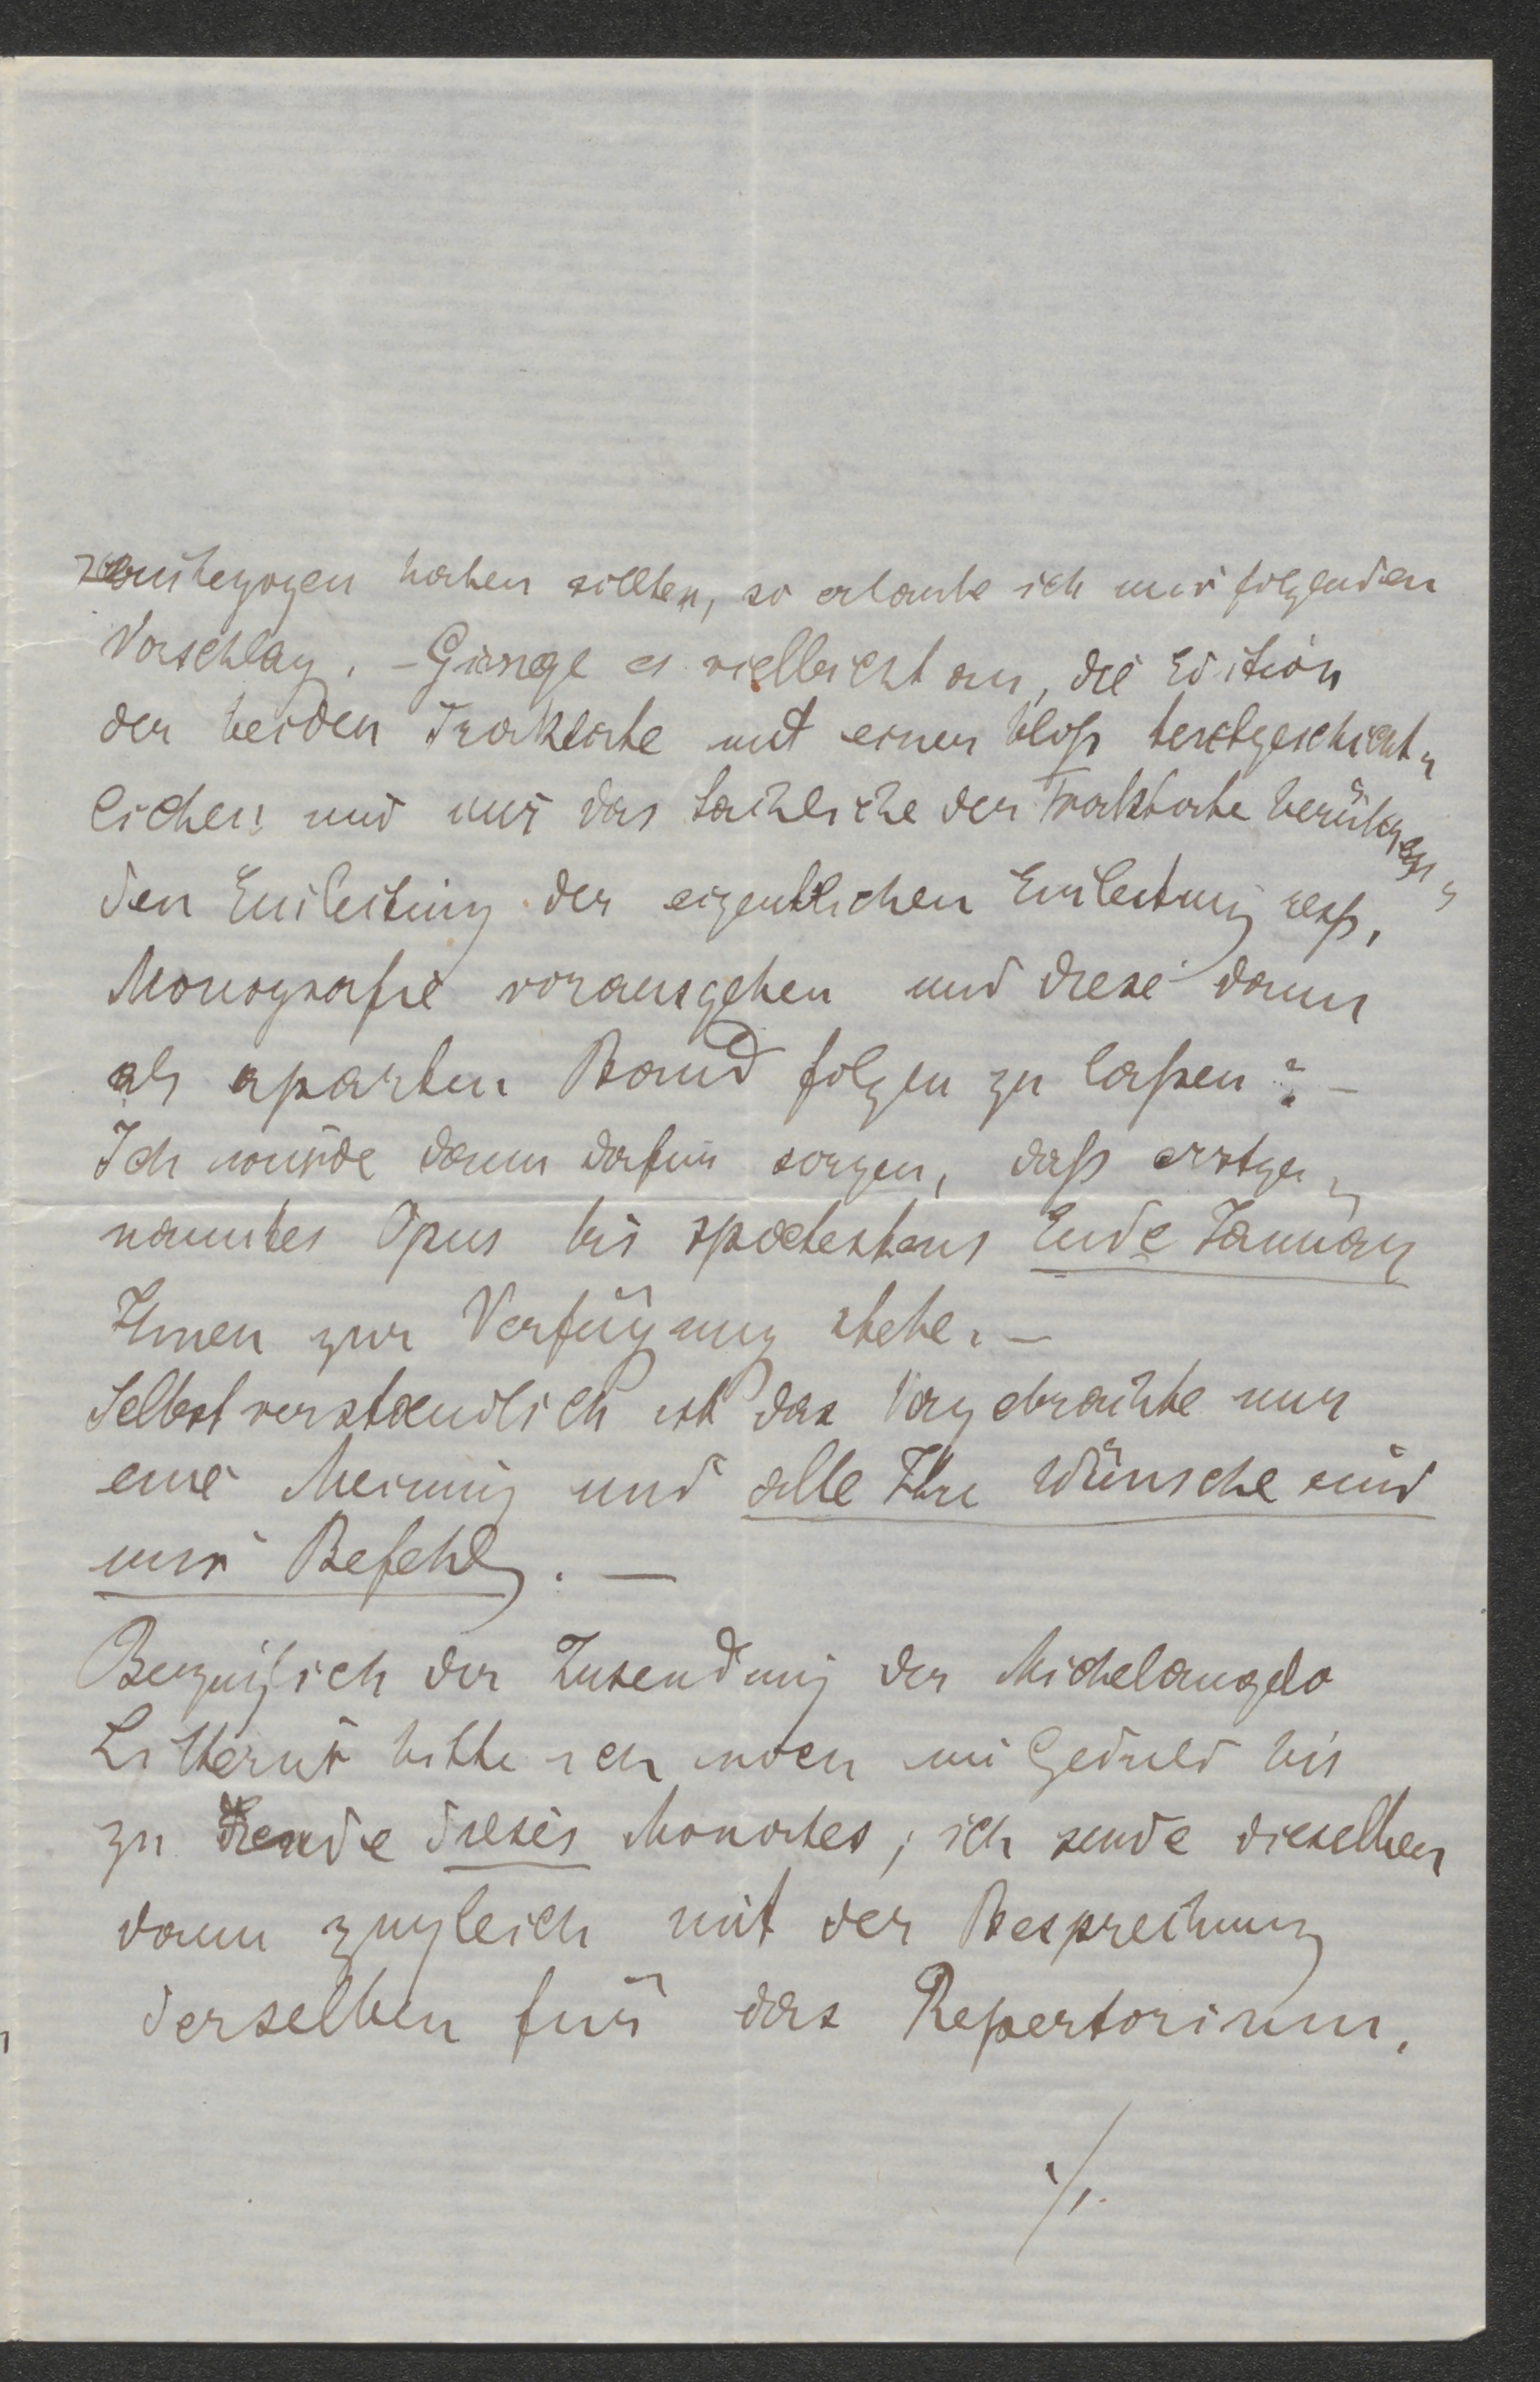 haben sollten, so erlaube ich mir folgenden
Vorschlag. – Gienge es vielleicht an, die Edition
der beiden Traktate mit einer bloß textgeschicht-
lichen und nur das Sachliche der Traktate
den Einleitung der eigentlichen Einleitung resp.
Monografie vorausgehen und diese dann
als aparten Band folgen zu laßen? –
Ich würde dann dafür sorgen, daß erstge-
nanntes Opus bis spaetestens Ende Januar
Ihnen zur Verfügung stehe. –
Selbstverstaendlich ist das Vorgebrachte nur
eine Meinung und alle Ihre Wünsche sind
mir Befehl. –
Bezüglich der Zusendung der Michelangelo
Litteratur bitte ich noch um Geduld bis
zu Ende dieses Monates; ich sende dieselben
dann zugleich mit der Besprechung
derselben für das Repertorium.
./.